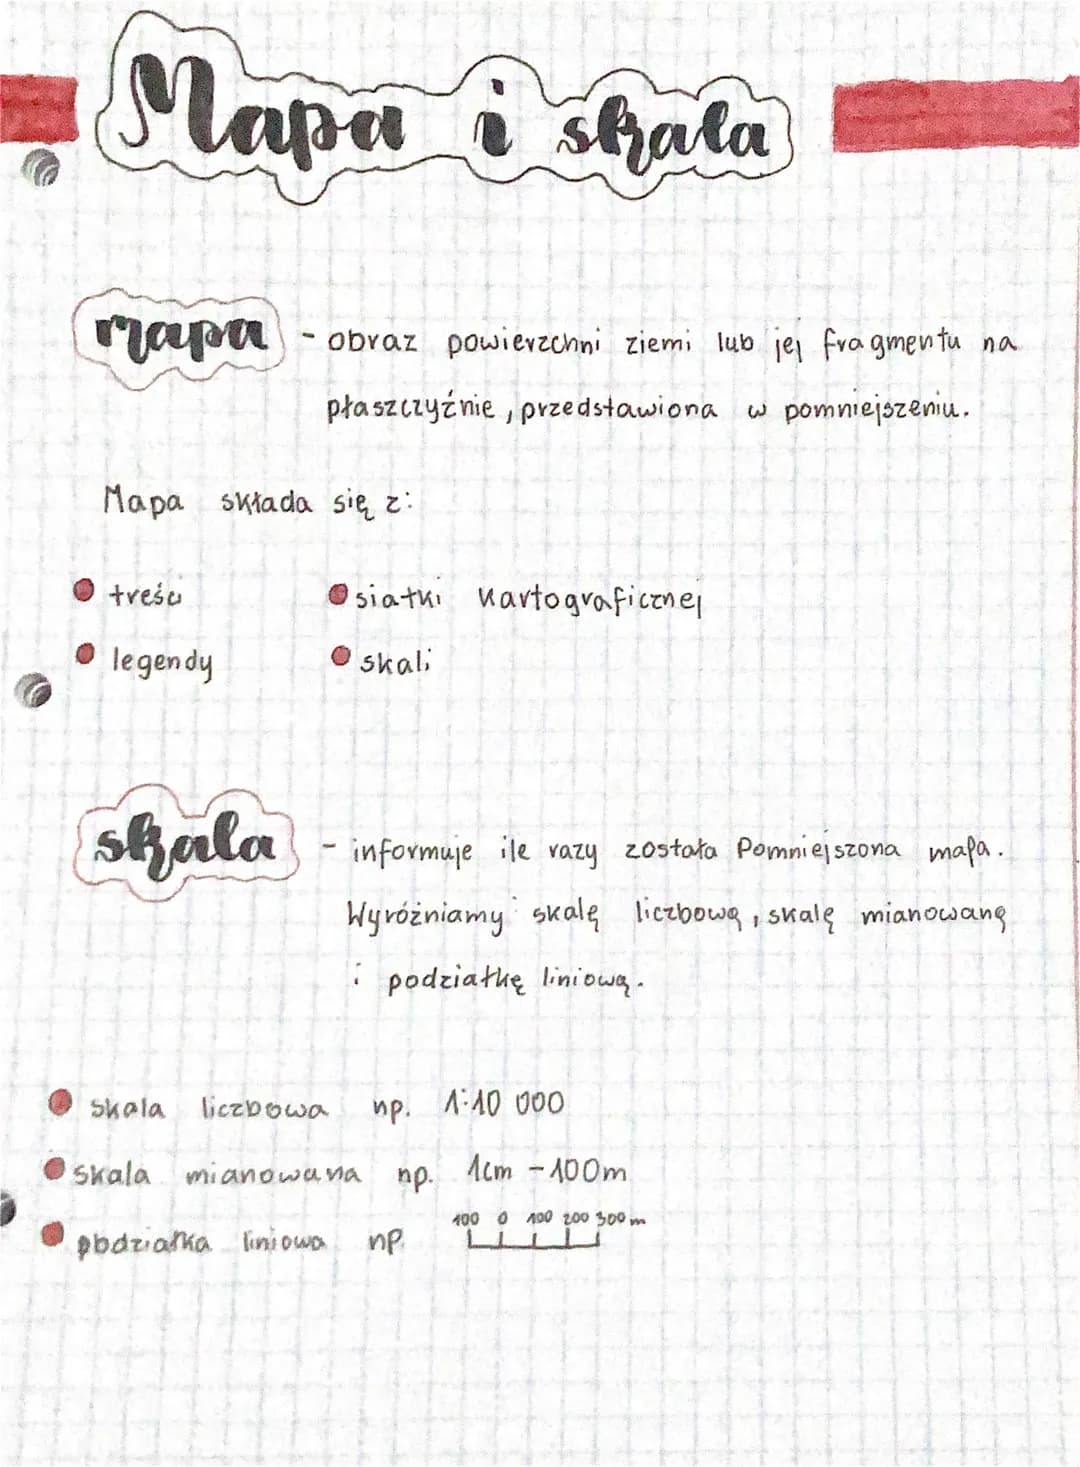 Mapa i skala
mapa - obraz powierzchni ziemi lub jej fragmentu na
płaszczyźnie, przedstawiona w pomniejszeniu.
Mapa składa się z:
treści
siatki kartograficznej
legendy
skali
skala - informuje ile razy została Pomniejszona mapa.
Wyróżniamy skalę liczbową, skalę mianowaną
i podziałkę liniową.
skala liczbowa np. 1:10 000
skala mianowana np. 1cm - 100m
podziałka liniowa np. 100 0 100 200 300 m